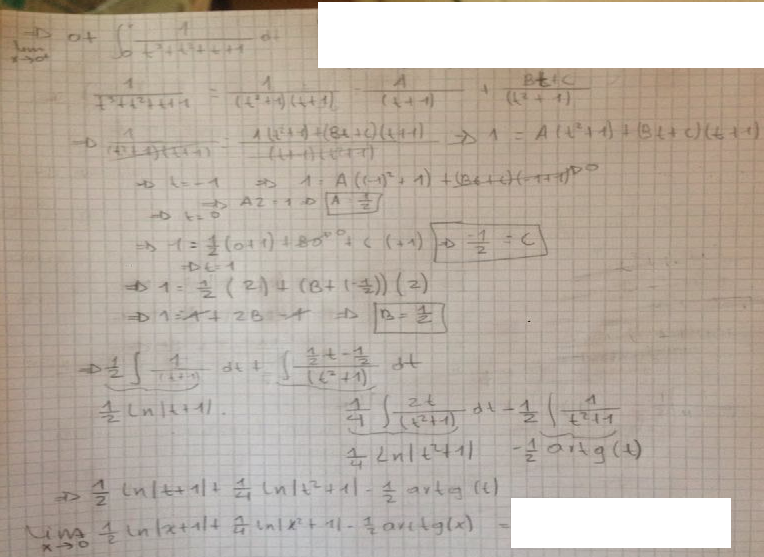 ⇒ 0+ ∫₀ˣ 1/(t³+t²+t+1) dt
lim x→0
1/(t³+t²+t+1) = 1/((t²+1)(t+1)) = A/(t+1) + (Bt+C)/(t²+1)
⇒ 1/((t²+1)(t+1)) = (A(t²+1)+(Bt+C)(t+1))/((t+1)(t²+1)) ⇒ 1 = A(t²+1)+(Bt+C)(t+1)
⇒ t=-1 ⇒ 1=A((-1)²+1)+(Bt+C)(-1+1)⁰
⇒ A2=1 ⇒ A=1/2
⇒ t=0
⇒ 1=1/2(0+1)+B0+C(+1) ⇒ -1/2=C
⇒ t=1
⇒ 1=1/2(2)+(B+(-1/2))(2)
⇒ 1=1+2B-1 ⇒ B=1/2
⇒ 1/2 ∫ 1/(t+1) dt + ∫ (1/2t-1/2)/(t²+1) dt
1/2 ln|t+1|. 1/4 ∫ 2t/(t²+1) dt - 1/2 ∫ 1/(t²+1)
1/4 ln|t²+1| -1/2 artg(t)
⇒ 1/2 ln|t+1|+1/4 ln|t²+1|-1/2 artg(t)
lim x→0 1/2 ln|x+1|+1/4 ln|x²+1|-1/2 arctg(x) =